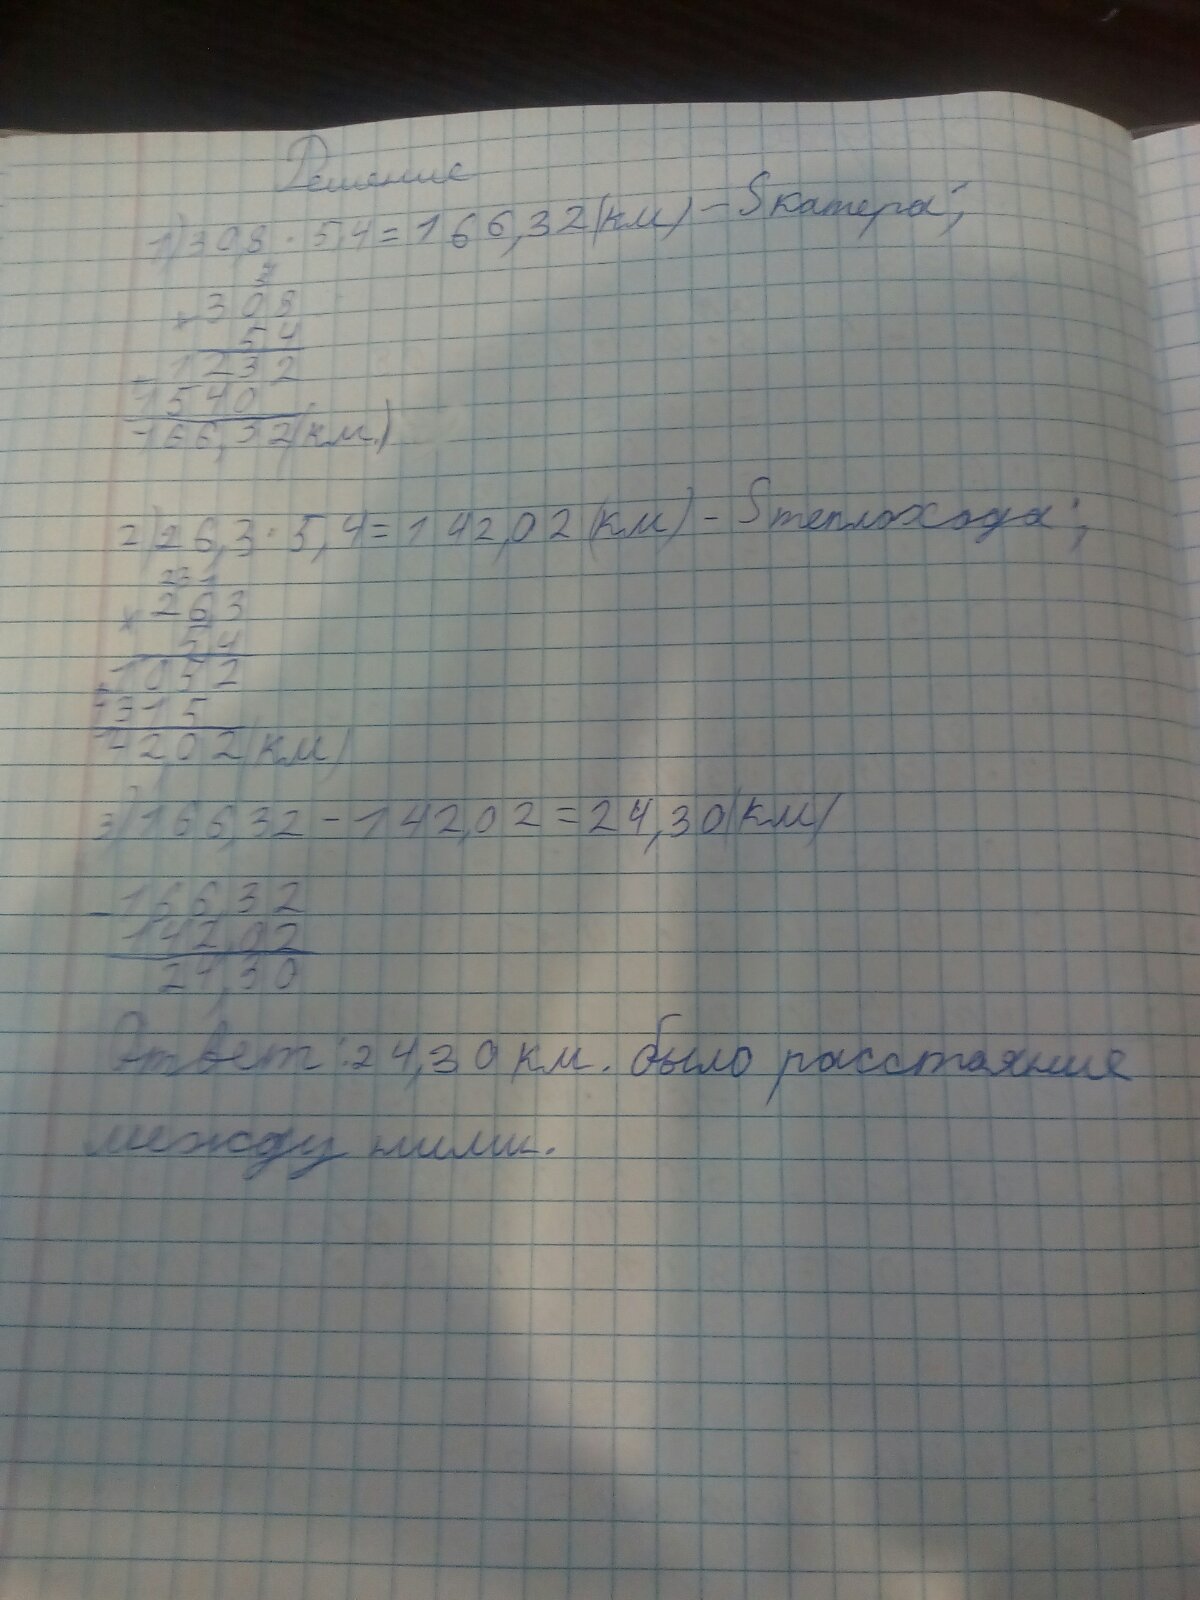 Решение
1) 30,8 · 5,4 = 166,32 (км) – S катера;
3
× 308
54
+ 1232
1540
166,32 (км.)
2) 26,3 · 5,4 = 142,02 (км) – S теплохода;
231
× 263
54
+ 1052
1315
142,02 (км)
3) 166,32 – 142,02 = 24,30 (км)
– 166,32
142,02
24,30
Ответ: 24,30 км. было расстояние
между ними.